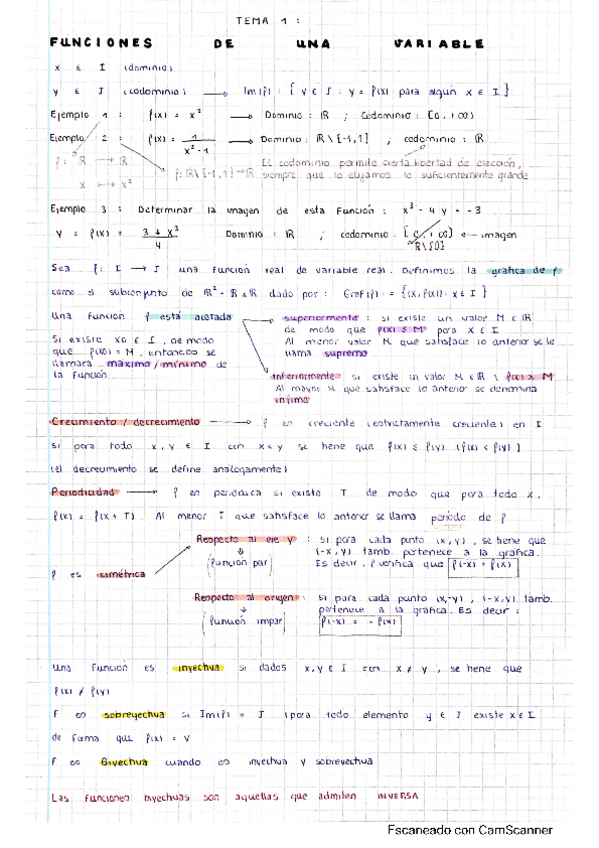 TEMA 1:
FUNCIONES DE UNA VARIABLE
x ∈ I (dominio)
y ∈ J (codominio) → Im(f): { y ∈ J : y = f(x) para algún x ∈ I }
Ejemplo 1 : f(x) = x² → Dominio : ℝ ; Codominio : [0, +∞)
Ejemplo 2 : f(x) = 1 / x²-1 → Dominio : ℝ \ {-1,1} ; codominio : ℝ
f: ℝ → ℝ
x ↦ x²
f: ℝ\{-1,1} → ℝ
El codominio permite cierta libertad de elección,
siempre que lo elijamos lo suficientemente grande
Ejemplo 3 : Determinar la imagen de esta función : x³ - 4y = -3
y = f(x) = 3 + x³ / 4 Dominio : ℝ ; codominio : [0, +∞) ← imagen
ℝ\{0}
Sea f: I → J una función real de variable real. Definimos la gráfica de f
como el subconjunto de ℝ² = ℝ x ℝ dado por : Graf(f) = {(x, f(x)) : x ∈ I }
Una función f está acotada
superiormente : si existe un valor M ∈ ℝ
de modo que f(x) ≤ M para x ∈ I
Al menor valor M que satisface lo anterior se le
llama supremo
Si existe x0 ∈ I, de modo
que f(x0) = M, entonces se
llamará máximo / mínimo de
la función
inferiormente : si existe un valor M ∈ ℝ \ f(x) ≥ M
Al mayor M que satisface lo anterior se denomina
ínfimo
Crecimiento / decrecimiento → f es creciente (estrictamente creciente) en I
si para todo x, y ∈ I con x < y se tiene que f(x) ≤ f(y) (f(x) < f(y))
(el decrecimiento se define análogamente)
Periodicidad → f es periódica si existe T de modo que para todo x,
f(x) = f(x + T). Al menor T que satisface lo anterior se llama período de f
f es simétrica
Respecto al eje y : si para cada punto (x, y), se tiene que
(-x, y) tamb. pertenece a la gráfica.
Es decir, f verifica que f(-x) = f(x)
↓
(función par)
Respecto al origen : si para cada punto (x, y), (-x, y) tamb.
pertenece a la gráfica. Es decir :
f(-x) = - f(x)
↓
(función impar)
Una función es inyectiva si dados x, y ∈ I con x ≠ y, se tiene que
f(x) ≠ f(y)
f es sobreyectiva si Im(f) = J (para todo elemento y ∈ J existe x ∈ I
de forma que f(x) = y
f es Biyectiva cuando es inyectiva y sobreyectiva
Las funciones biyectivas son aquellas que admiten INVERSA
Escaneado con CamScanner